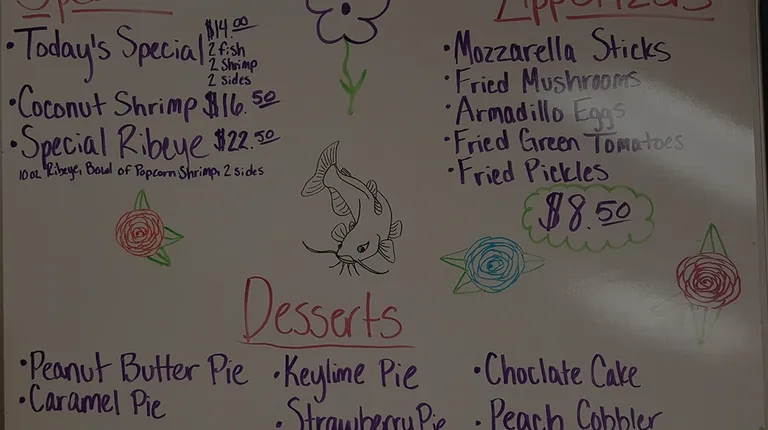 Specials
• Today's Special $14.00
2 fish
2 Shrimp
2 sides
• Coconut Shrimp $16.50
• Special Ribeye $22.50
10 oz Ribeye, Bowl of Popcorn Shrimp, 2 sides
Appetizers
• Mozzarella Sticks
• Fried Mushrooms
• Armadillo Eggs
• Fried Green Tomatoes
• Fried Pickles
$8.50
Desserts
• Peanut Butter Pie
• Caramel Pie
• Keylime Pie
• Strawberry Pie
• Choclate Cake
• Peach Cobbler